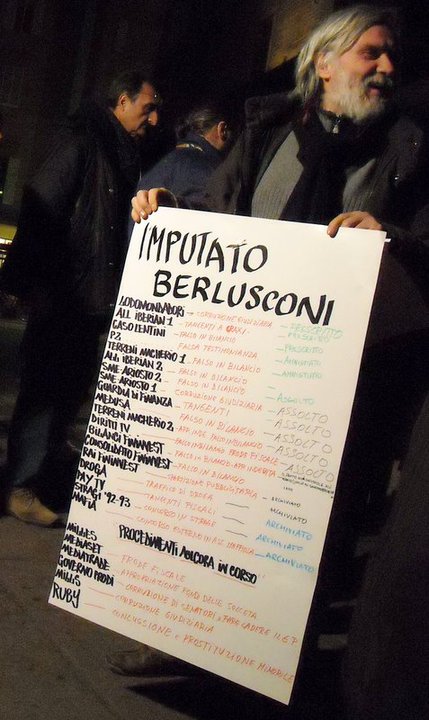 IMPUTATO
BERLUSCONI
LODOMONDADORI - CORRUZIONE GIUDIZIARIA - PRESCRITTO
ALL IBERIAN 1 - TANGENTI A CRAXI - PRESCRITTO
CASO LENTINI - FALSO IN BILANCIO - PRESCRITTO
P2 - FALSA TESTIMONIANZA - AMNISTIATO
TERRENI MACHERIO 1 - FALSO IN BILANCIO - AMNISTIATO
ALL IBERIAN 2 - FALSO IN BILANCIO - ASSOLTO
SME ARIOSTO 2 - FALSO IN BILANCIO - ASSOLTO
SME ARIOSTO 1 - CORRUZIONE GIUDIZIARIA - ASSOLTO
GUARDIA DI FINANZA - TANGENTI - ASSOLTO
MEDUSA - FALSO IN BILANCIO - ASSOLTO
TERRENI MACHERIO 2
DIRITTI TV
BILANCI FININVEST
CONSOLIDATO FININVEST - FALSO IN BILANCIO
RAI FININVEST - PUBBLICITARIA - ARCHIVIATO
DROGA - TRAFFICO DI DROGA - ARCHIVIATO
PAY TV - TANGENTI FISCALI - ARCHIVIATO
STRAGI '92-93 - CONCORSO IN STRAGE - ARCHIVIATO
MAFIA - CONCORSO ESTERNO IN ASS. MAFIOSA - ARCHIVIATO
PROCEDIMENTI ANCORA IN CORSO
MILLS
MEDIASET - FRODE FISCALE
MEDIATRADE - APPROPRIAZIONE FONDI DELLE SOCIETÀ
GOVERNO PRODI - CORRUZIONE DI SENATORI X FARE CADERE IL G.P
MILLS - CORRUZIONE GIUDIZIARIA
RUBY - CONCUSSIONE E PROSTITUZIONE MINORILE